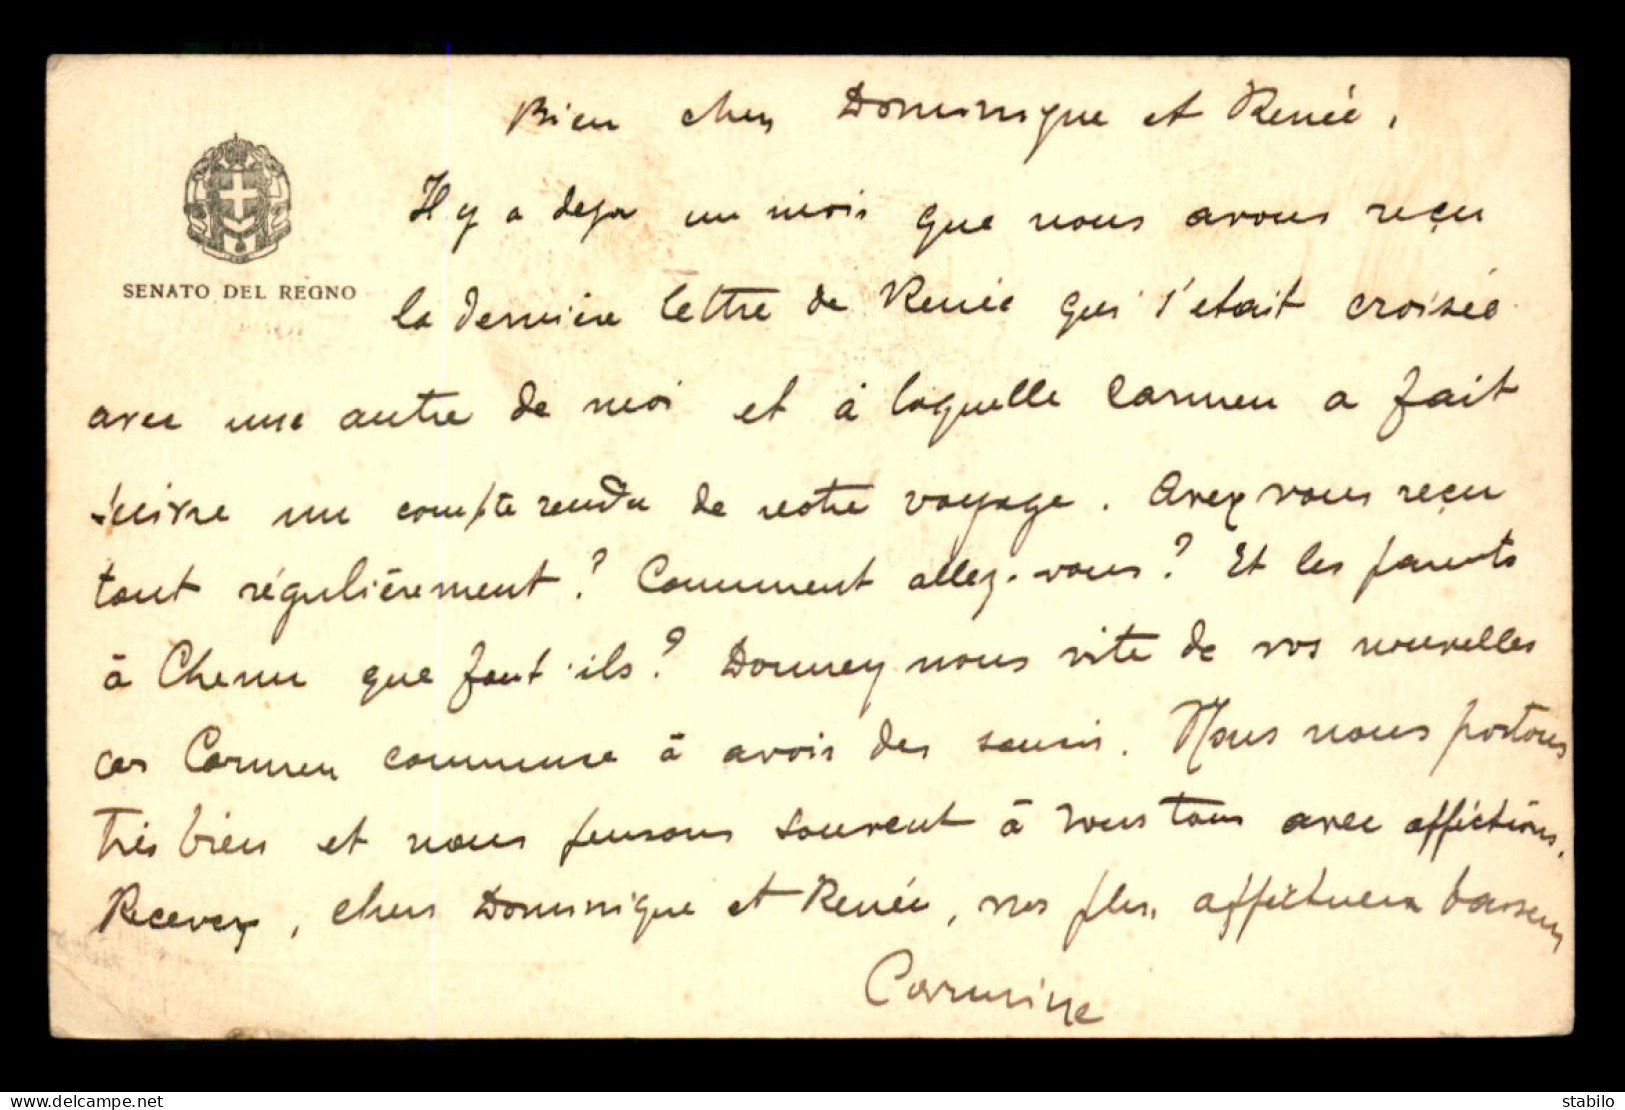 Bien chers Dominique et Renée,
Il y a deja un mois que nous avons reçu
SENATO DEL REGNO
la dernière lettre de Renée qui s'etait croisée
avec une autre de moi et à laquelle Carmen a fait
suivre un compte rendu de notre voyage. Avez vous reçu
tout régulièrement? Comment allez-vous? Et les parents
à Chenu que font-ils? Donnez nous vite de vos nouvelles
car Carmen commence à avoir des soucis. Nous nous portons
très bien et nous pensons souvent à vous tous avec affections.
Recevez, chers Dominique et Renée, nos plus affectueux baisers
Carmine
www.delcampe.net
stabilo